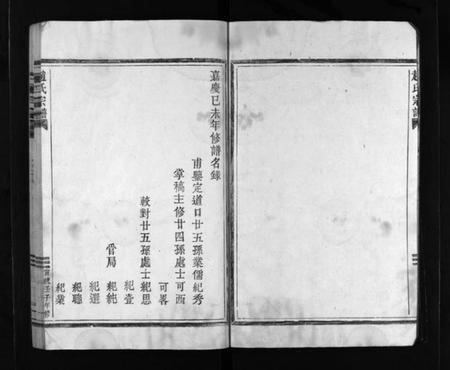 趙氏宗譜
嘉慶己未年修譜名錄
甫鑒定道口廿五孫業儒紀秀
掌稿主修廿四孫處士可西
可畧
較對廿五孫處士紀思
紀壹
督局
紀純
紀選
紀聰
紀業
趙氏宗譜
壬子年修